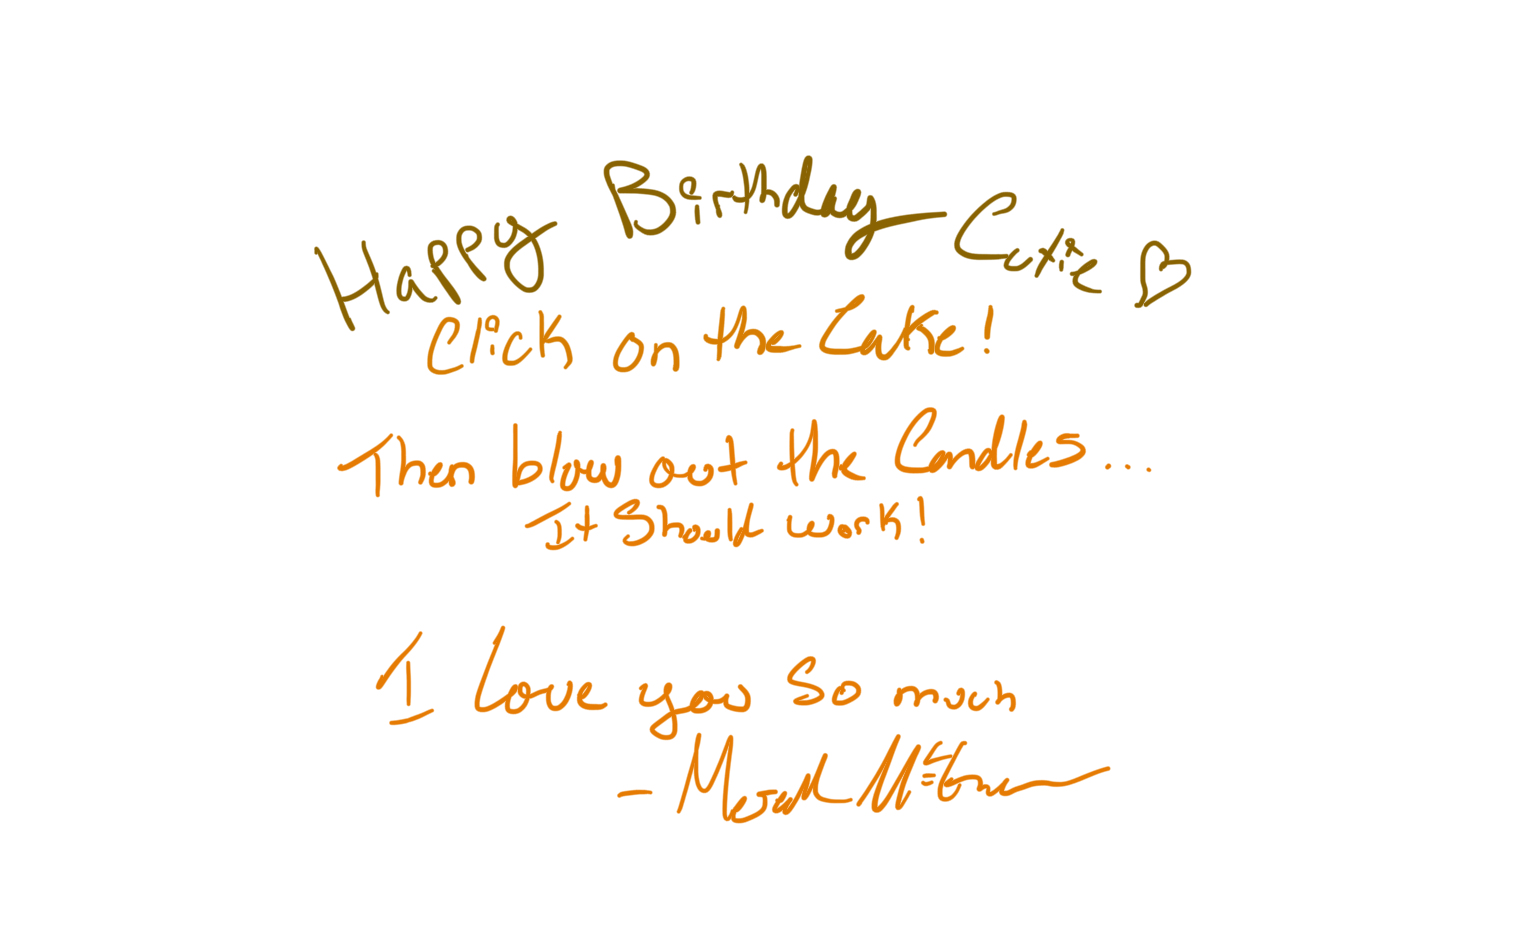 Happy Birthday Cutie
Click on the Cake!
Then blow out the Candles...
It Should work!
I Love you So much
-